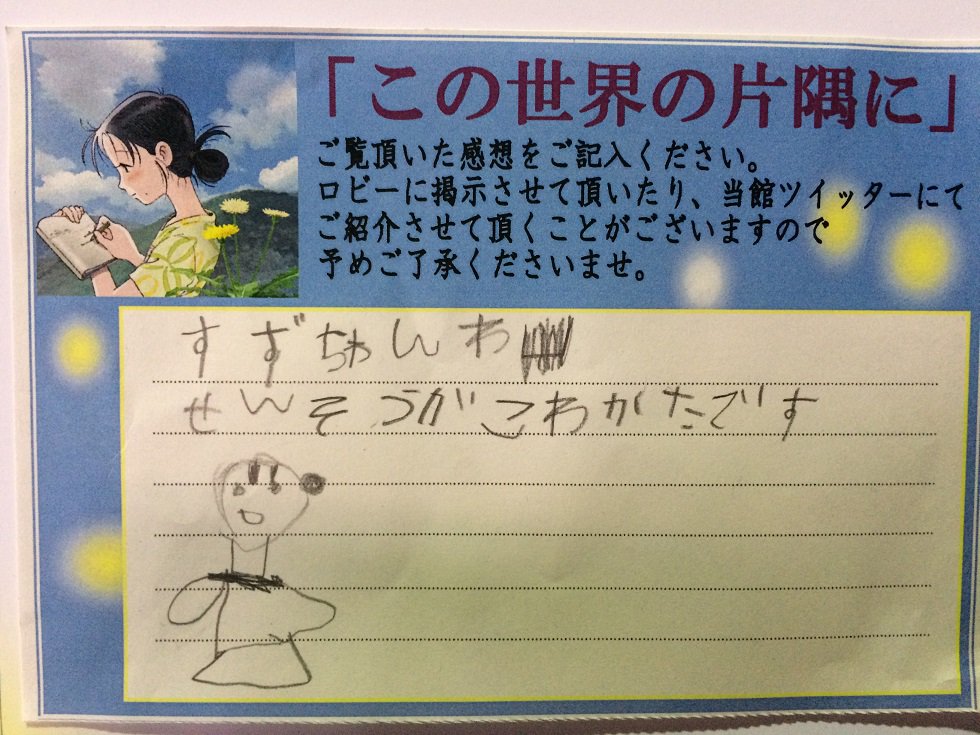 「この世界の片隅に」
ご覧頂いた感想をご記入ください。
ロビーに掲示させて頂いたり、当館ツイッターにて
ご紹介させて頂くことがございますので
予めご了承くださいませ。
すずちゃんわ
せんそうがこわがたです